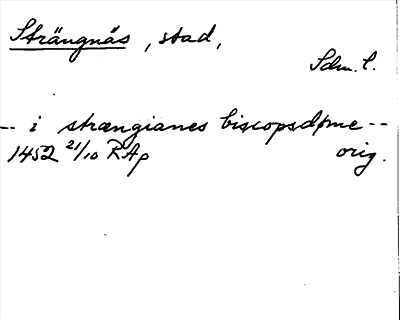 Strängnäs, stad,
Sdm. l.
-- i strængianes biscopsdøme --
1452 21/10 RAp orig.